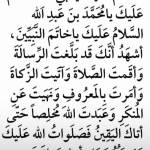 عَلَيْكَ يا مُحَمَّدَ بْنَ عَبْدِ اللهِ
السَّلامُ عَلَيْكَ يا خاتَمَ النَّبِيِّينَ،
أَشْهَدُ أَنَّكَ قَدْ بَلَّغْتَ الرِّسالَةَ
وَأَقَمْتَ الصَّلاةَ وَآتَيْتَ الزَّكاةَ
وَأَمَرْتَ بِالْمَعْرُوفِ وَنَهَيْتَ عَنِ
الْمُنْكَرِ وَعَبَدْتَ اللهَ مُخْلِصاً حَتّى
أَتاكَ الْيَقِينُ فَصَلَواتُ اللهِ عَلَيْكَ